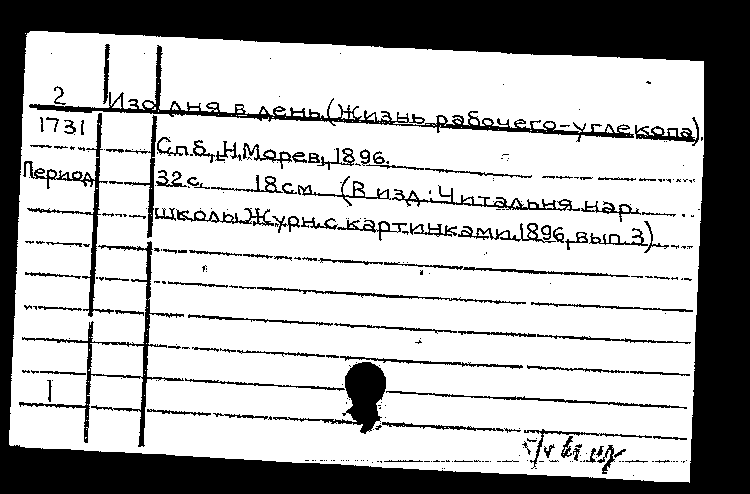 2 Изо дня в день.(Жизнь рабочего-углекопа).
1731
Спб., Н.Морев, 1896.
Период 32 с. 18 см. (В изд.: Читальня нар.
школы. Журн. с картинками. 1896, вып. 3).
1